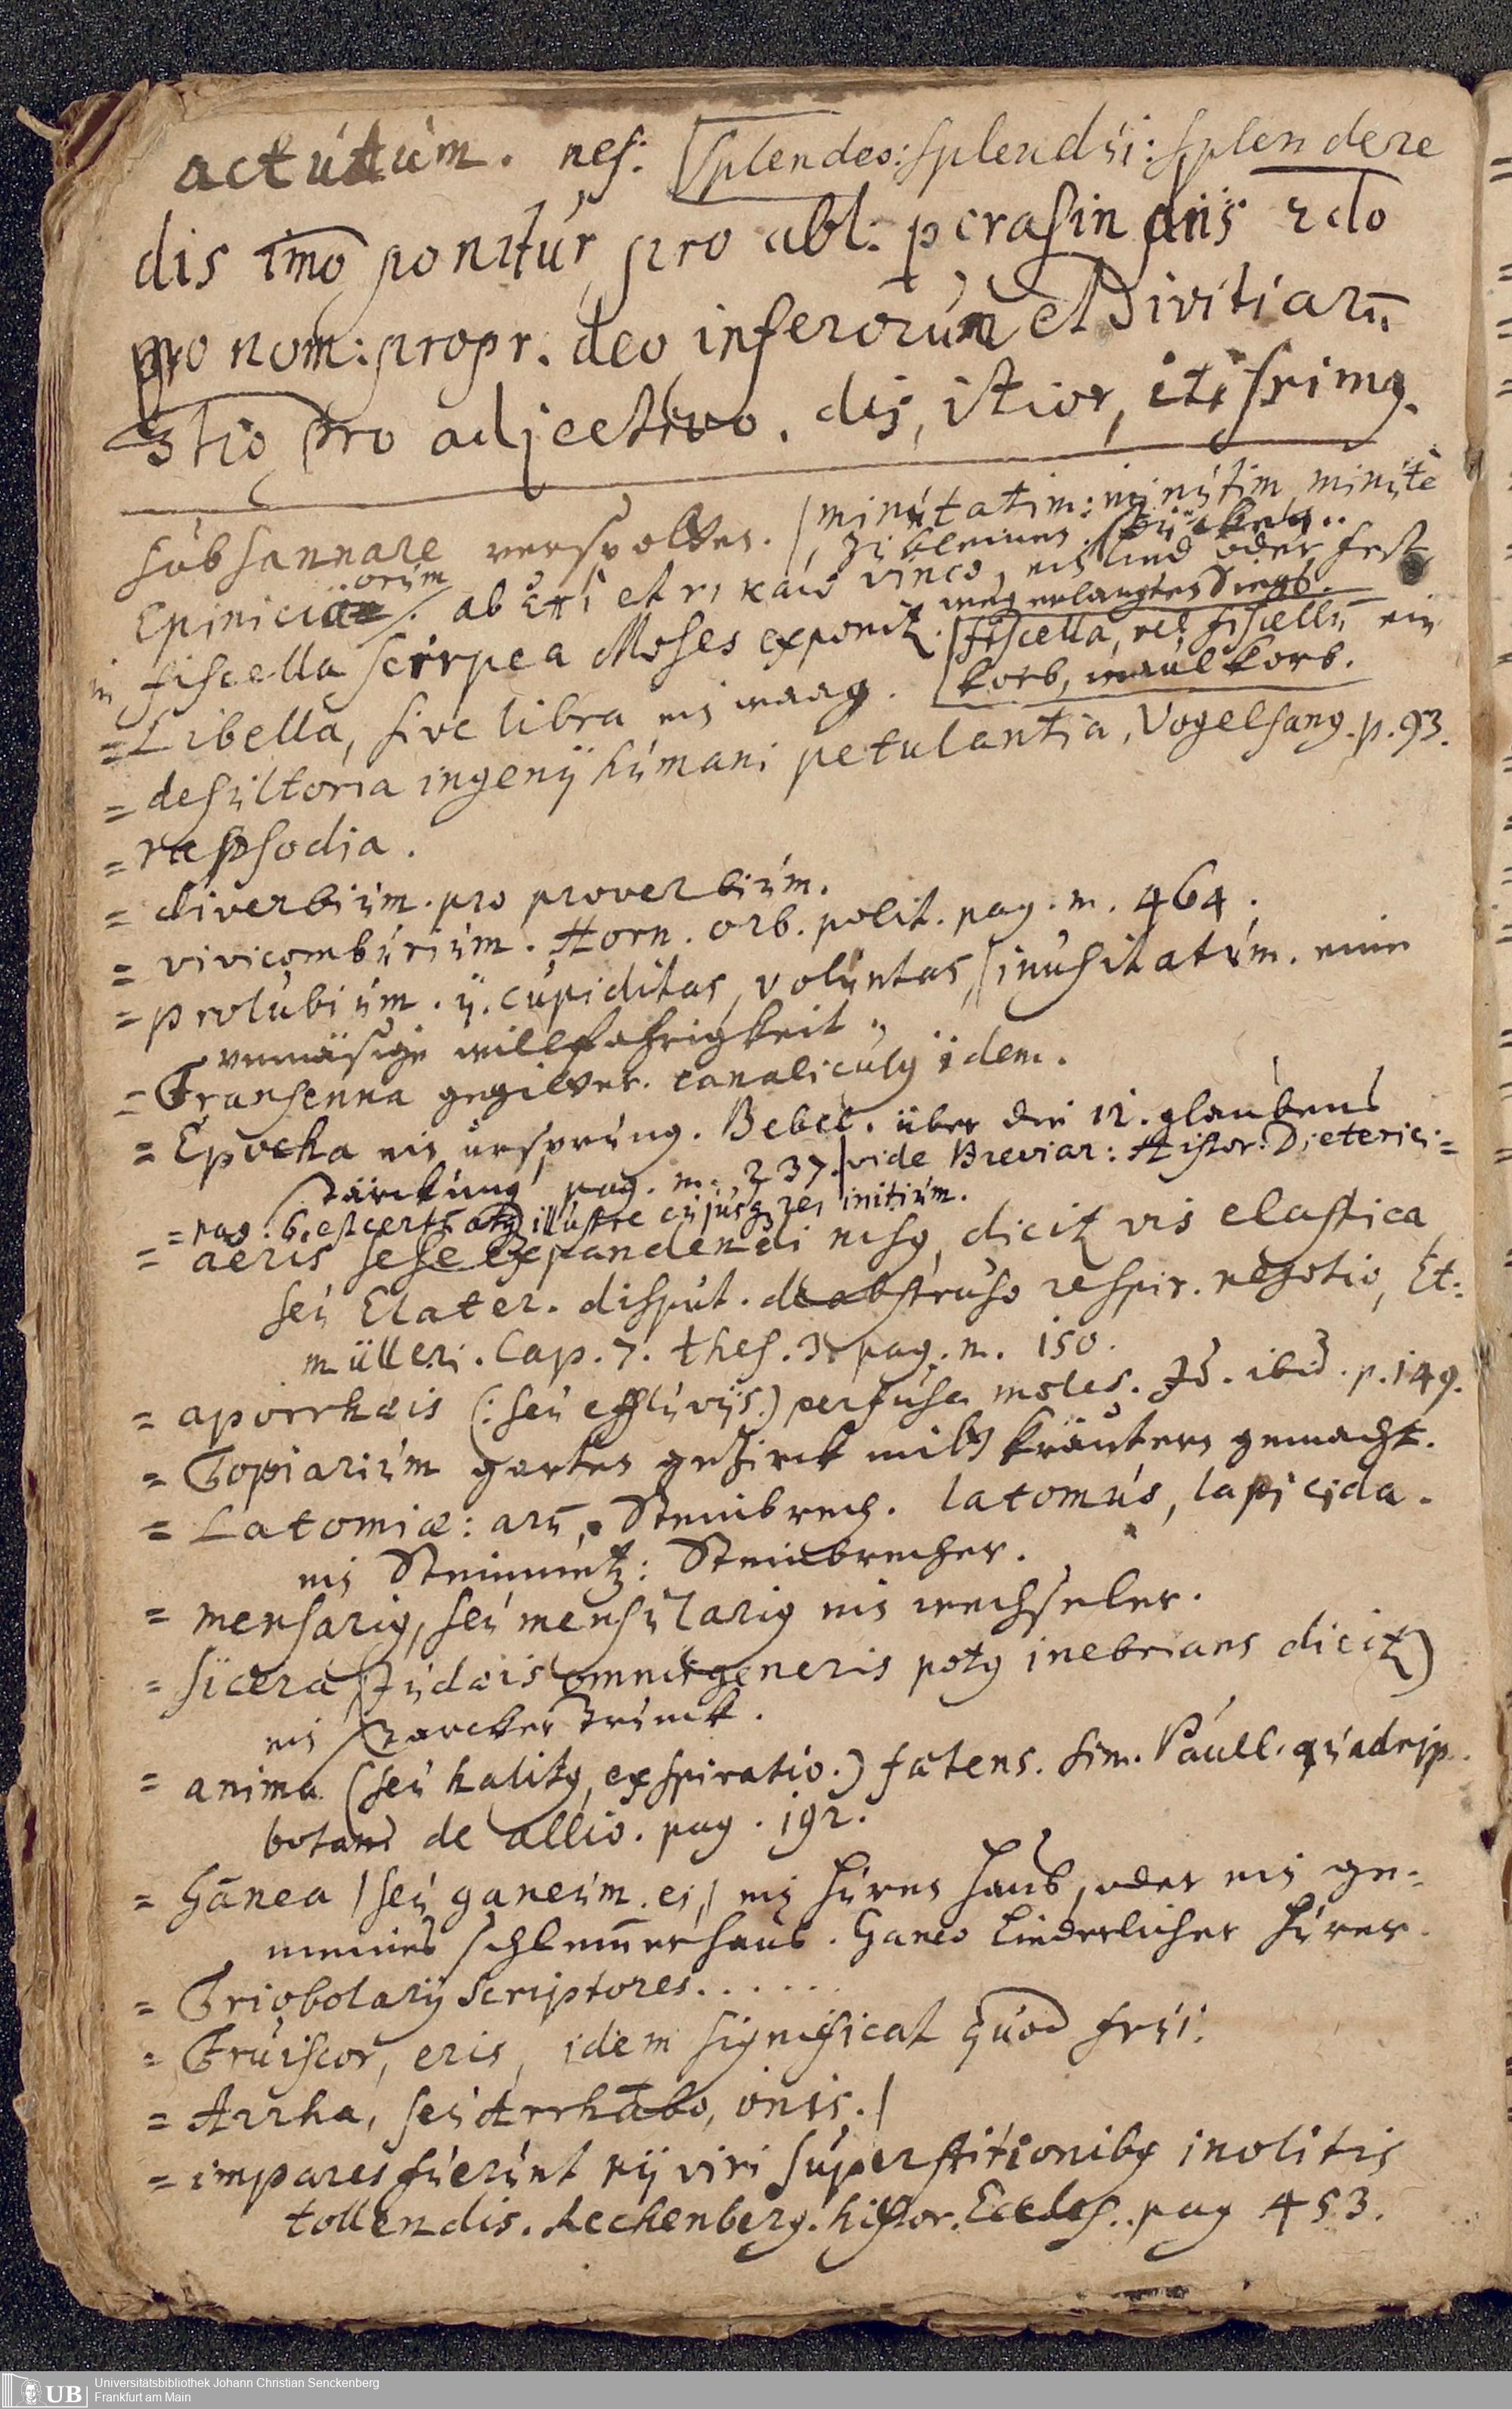 actutum. nes: Splendes: splendui: splendere
dis imo ponitur pro abl: p crasin diis 2do
pro nom: propr. deo inferorum et Divitiarū
3tio pro adjectivo. dis, itior, itissimꝰ.
subsannare verspotten. minutatim: minutim minutè
zu kleinen stücken..
Epinicia orum. ab ἐπὶ et νικάω vinco, ein lied oder fest
weg erlangten Siegs.
in fiscella scirpea Moses exponit. fiscella, vel fiscellū ein
korb, maulkorb.
= Libella, sive libra ein waag.
= desultoria ingenÿ humani petulantia, Vogelsang. p. 93.
= rapsodia.
= diverbium. pro proverbium.
= vivicomburium. Horn. orb. polit. pag. m. 464.
= prolubium. ÿ. cupiditas, voluntas, inusitatum. eine
unmäsige willfahrigkeit.
= Transenna gegitter. canaliculꝰ idem.
= Epocha ein ursprung. Bebel. über die 12. glaubens
stärckung pag. m. 237. vide Breviar: Histor: Dieterici=
= pag. 6. est certꝰ atqꝫ illustre cujusqꝫ rei initium.
= aeris sese expandendi nisꝰ, dicit vis elastica,
seu Elater. disput. de abstruso respir. negotio, Et-
mülleri. Cap. 7. thes. 3. pag. m. 150.
= aporrhæis (: seu effluviis.) perfusa moles. Id. ibid. p. 149.
= Topiarium garten gezirck mit kräutern gemacht.
= Latomiæ: arū, Steinbrech. latomus, lapicida.
ein Steinmetz: Steinbrecher.
= mensariꝰ, seu mensulariꝰ ein wechsler.
= sicera (Judæis omnis generis potꝰ inebrians dicit)
ein starcker Trunck.
= anima (seu halitꝰ, exspiratio.) fætens. Sim. Paull. quadrip.
botan de allio. pag. 192.
= Ganea (seu ganeum. ei,) ein huren haus, oder ein ge-
meines schlem̄erhaus. Ganeo Liederlicher hurer.
= Triobolarÿ scriptores......
= Fruiscor, eris, idem significat quod frui.
= Arrha, seu Arrhabo, onis.
= impares fuerunt ii viri superstitionibꝰ inolitis
tollendis. Rechenberg. histor. Eccles. pag 453.
Universitätsbibliothek Johann Christian Senckenberg
Frankfurt am Main
UB